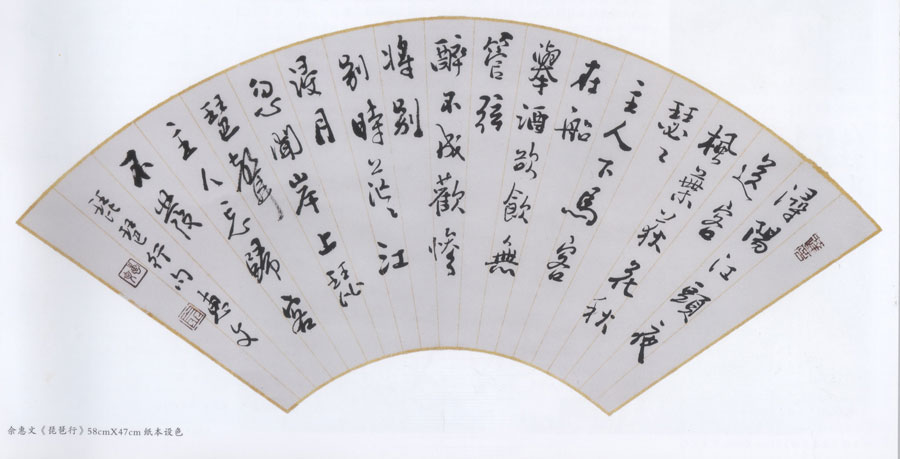 潯陽江頭夜
送客
楓葉荻花秋
瑟々
主人下馬客
在船
舉酒欲飲無
管弦
醉不成歡慘
將別
別時茫々江
浸月
忽聞岸上琵
琶聲
主人忘歸客
不發
琵琶行句 惠文
余惠文《琵琶行》58cmX47cm 纸本设色